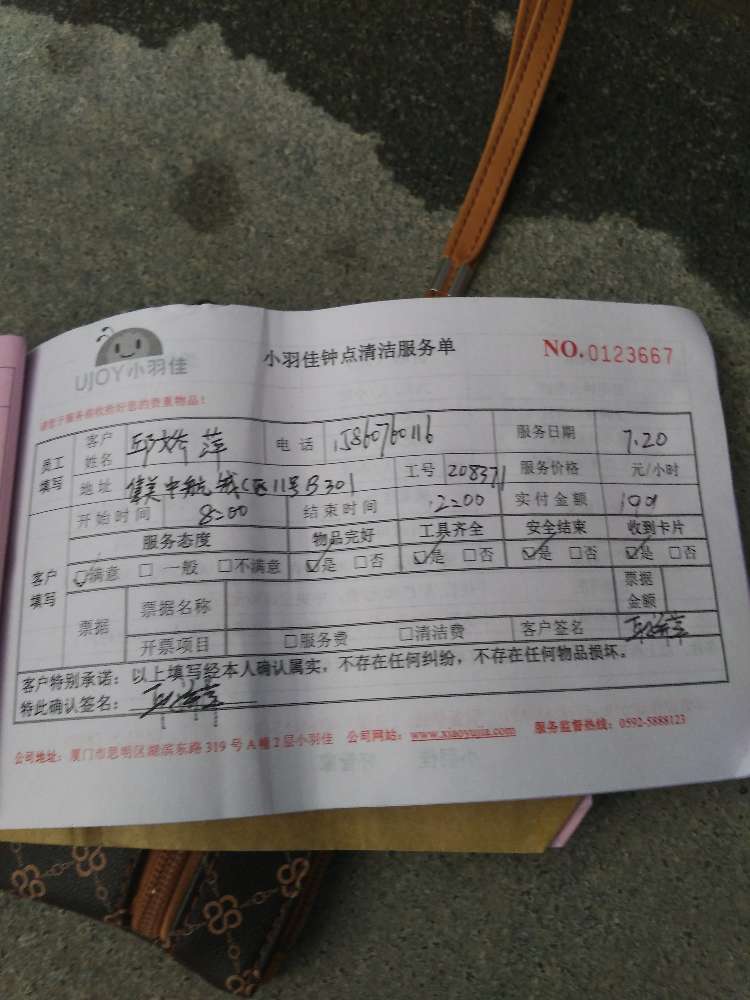 UJOY小羽佳
小羽佳钟点清洁服务单
NO.0123667
请您于服务前收拾好您的贵重物品！
员工填写 客户姓名 邱娇萍 电话 15860760116 服务日期 7.20
地址 中航城C区11号B301 工号 208371 服务价格 元/小时
开始时间 8:00 结束时间 12:00 实付金额
客户填写 服务态度 物品完好 工具齐全 安全结束 收到卡片
☑满意 □一般 □不满意 ☑是 □否 ☑是 □否 ☑是 □否 ☑是 □否
票据 票据名称 票据金额
开票项目 □服务费 □清洁费 客户签名
客户特别承诺：以上填写经本人确认属实，不存在任何纠纷，不存在任何物品损坏。
特此确认签名：
公司地址：厦门市思明区湖滨东路319号A幢2层小羽佳 公司网站：www.xiaoyujia.com 服务监督热线：0592-5888123